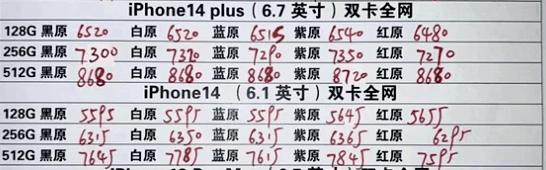 iPhone14 plus（6.7 英寸）双卡全网
128G 黑原 6520 白原 6520 蓝原 6515 紫原 6540 红原 6480
256G 黑原 7300 白原 7310 蓝原 7290 紫原 7350 红原 7270
512G 黑原 8680 白原 8680 蓝原 8680 紫原 8720 红原 8680
iPhone14 （6.1 英寸）双卡全网
128G 黑原 5595 白原 5595 蓝原 5595 紫原 5645 红原 5655
256G 黑原 6315 白原 6350 蓝原 6315 紫原 6365 红原 6295
512G 黑原 7645 白原 7785 蓝原 7615 紫原 7845 红原 7595